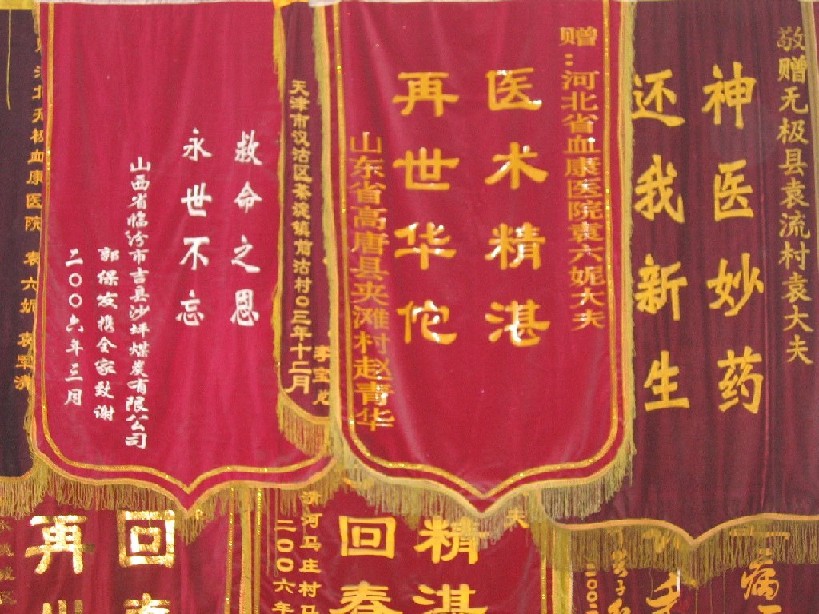 敬赠无极县袁流村袁大夫
神医妙药
还我新生
赠:河北省血康医院袁六妮大夫
医术精湛
再世华佗
山东省高唐县夹滩村赵青华
天津市汉沽区茶淀镇前沽村
〇三年十二月
救命之恩
永世不忘
山西省临汾市吉县沙坪煤炭有限公司
郭保发携全家致谢
二〇〇六年三月
河北无极血康医院 袁六妮
精湛
回春
滦河马庄村马
二〇〇六年
回春
再世
病